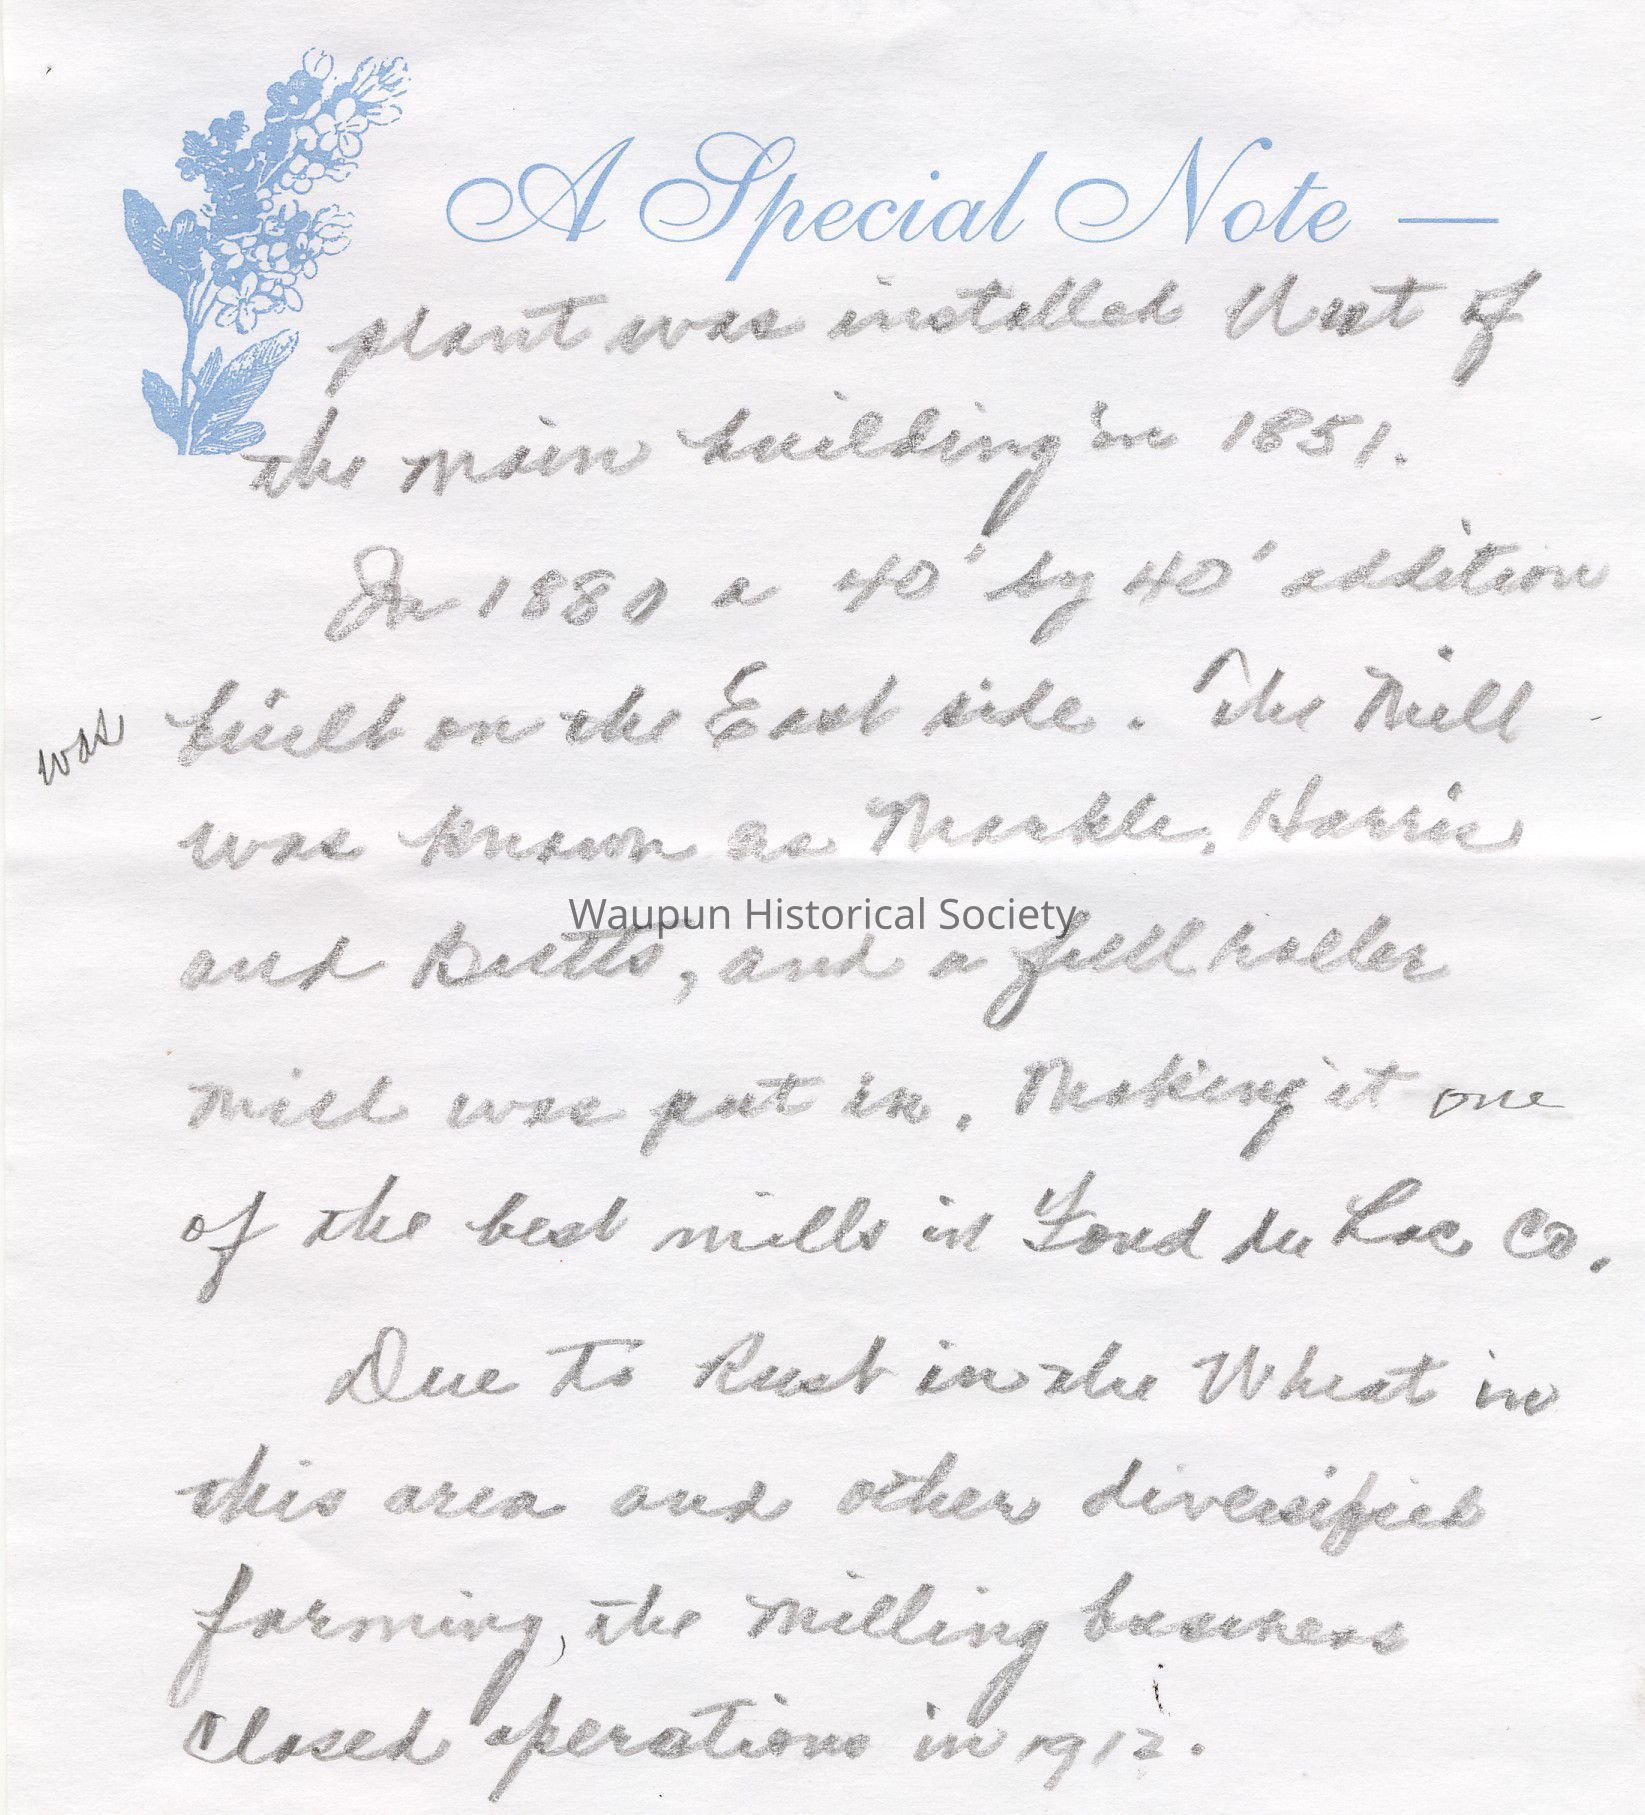 A Special Note —
plant was installed West of
the main building in 1851.
In 1880 a 40' by 40' addition
was built on the East side. The Mill
was known as Markle, Harris
Waupun Historical Society
and Butts, and a full roller
mill was put in. Making it one
of the best mills in Fond du Lac Co.
Due to Rust in the Wheat in
this area and other diversified
farming, the milling business
closed operations in 1912.